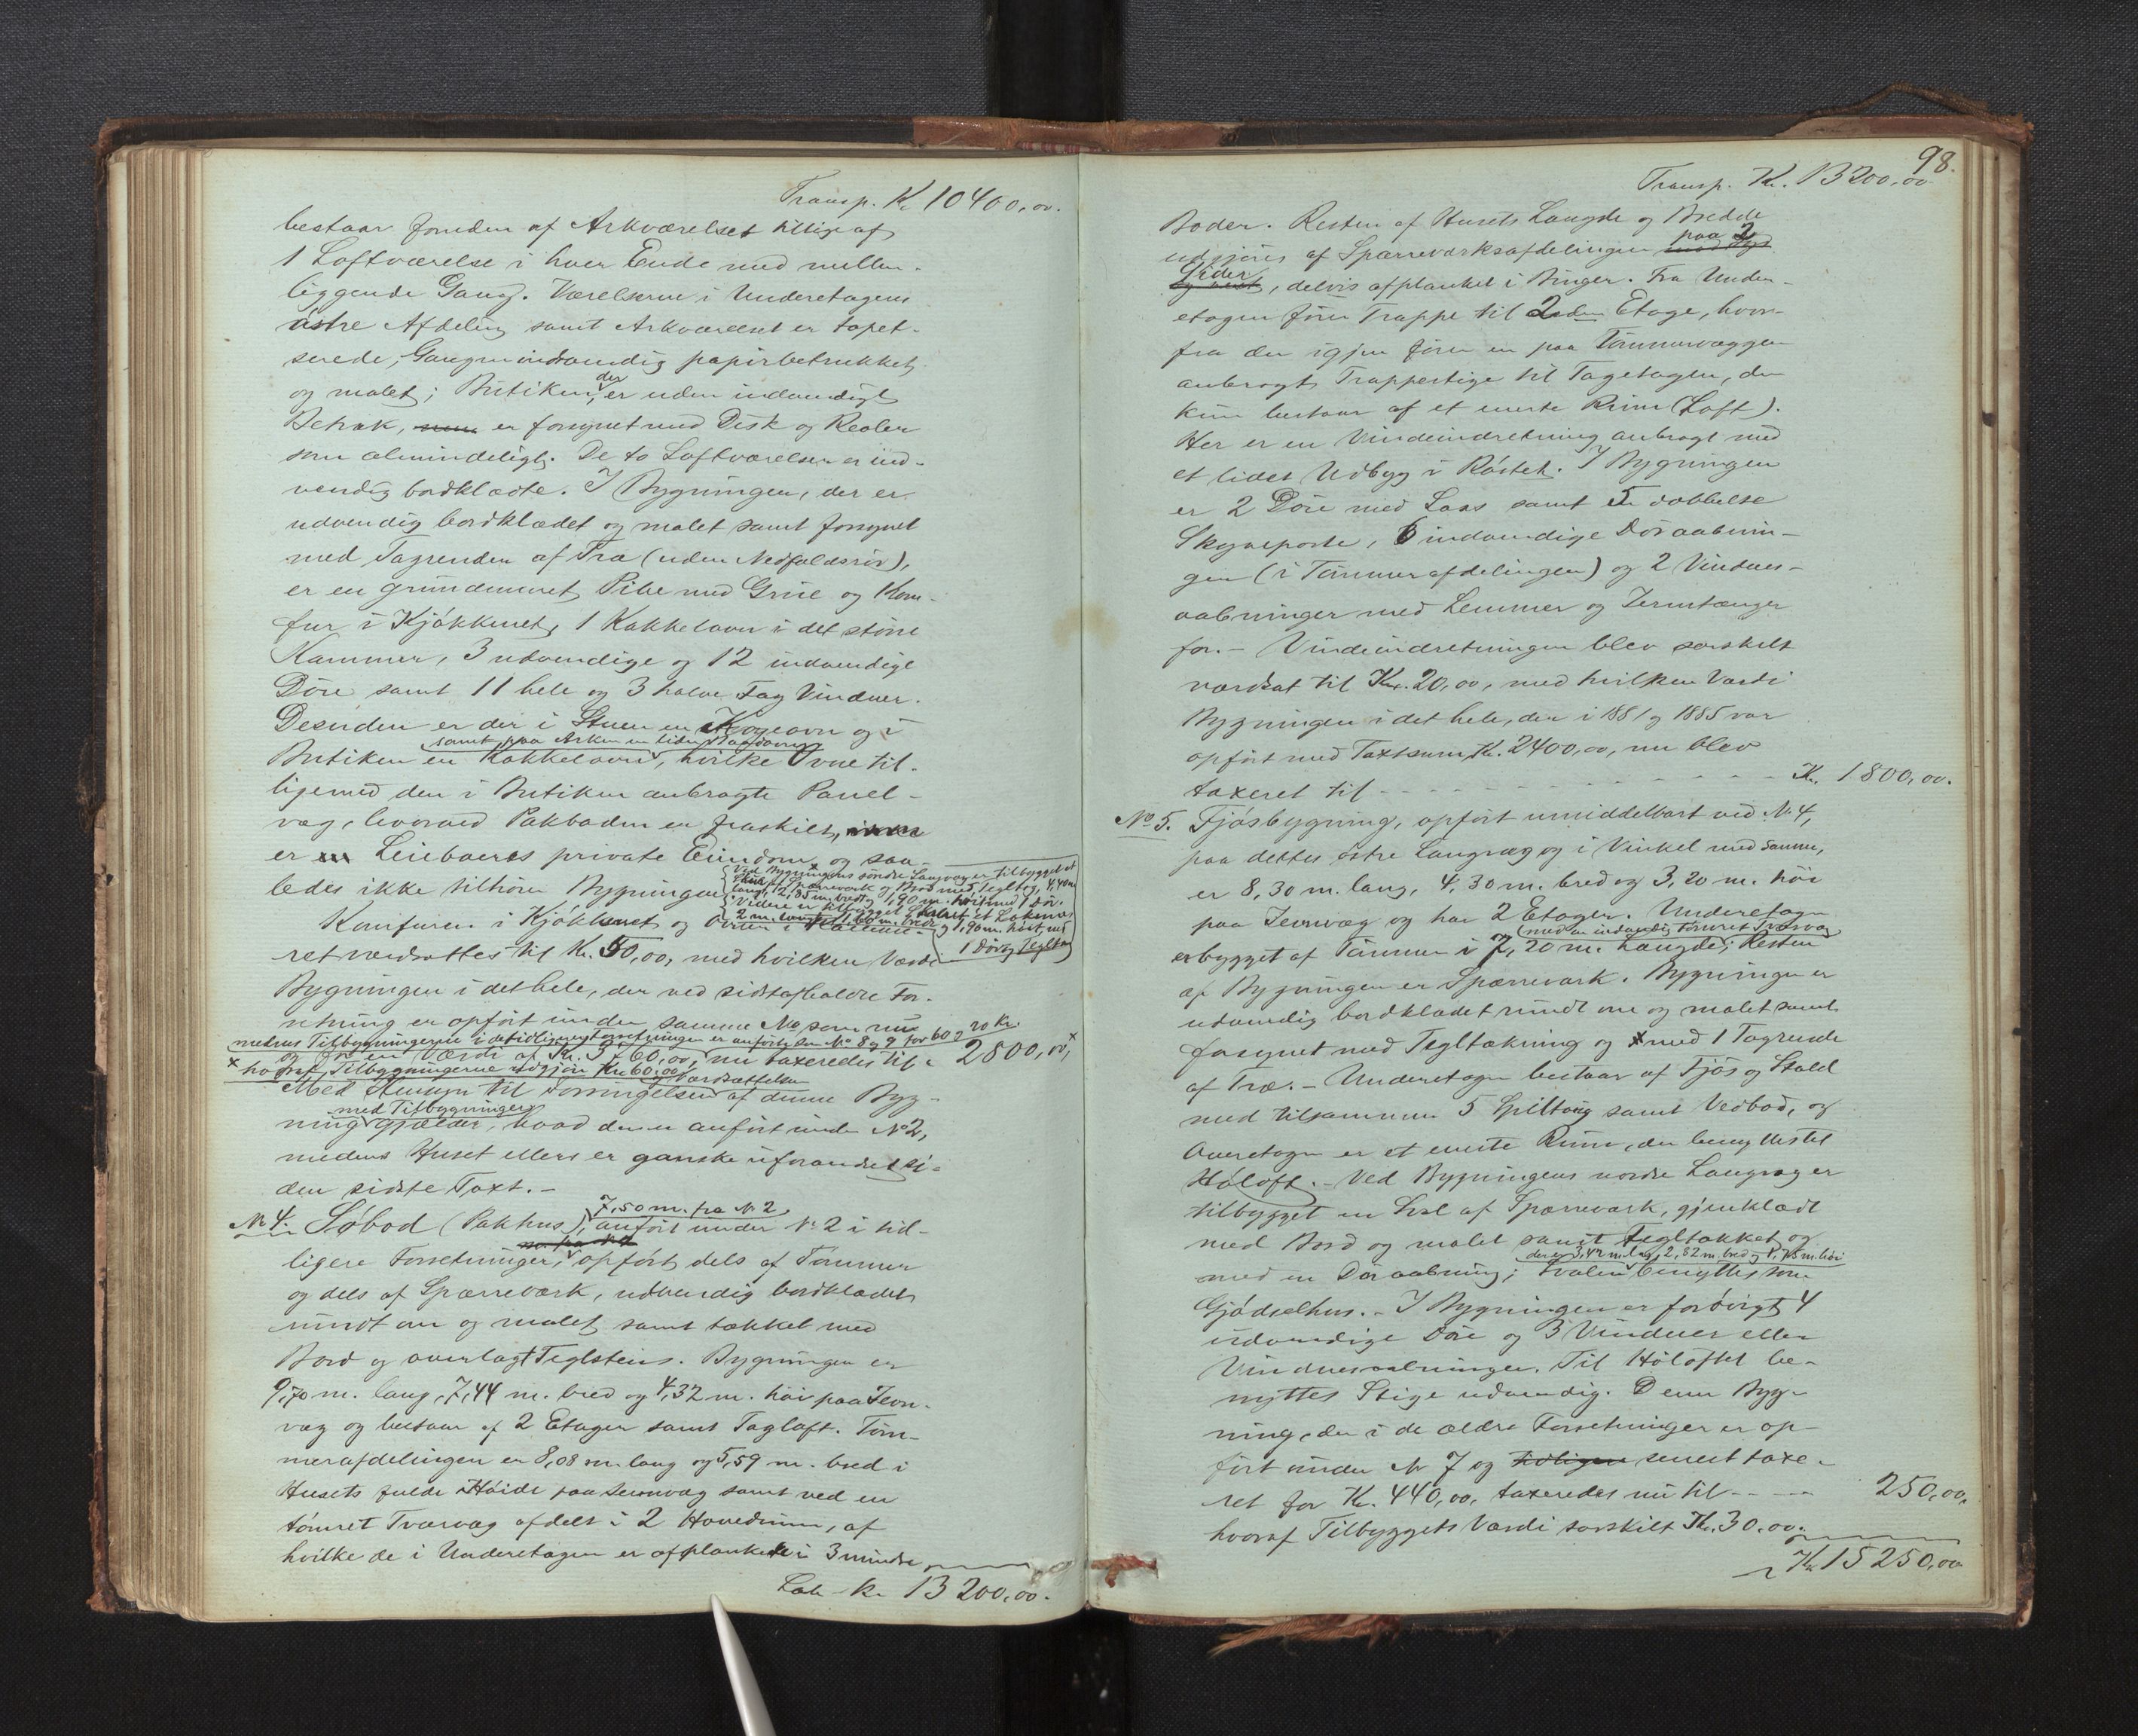 Transp. Kr. 10400,00.
bestaar foruden af Arkværelset tillige af
1 Loftværelse i hver Ende med mellem-
liggende Gang. Værelserne i Underetagens
østre Afdeling samt Arkværelset er tapet-
serede, Gangen indvendig papirbetrukket
og malet; Butiken, der er uden indvendigt
Betræk, er forsynet med Disk og Reoler
som almindeligt. De to Loftværelser er ind-
vendig bordklædte. I Bygningen, der er
udvendig bordklædet og malet samt forsynet
med Tagrender af Træ (uden Nedfaldsrør),
er en grundmuret Pibe med Grue og Kom-
fur i Kjøkkenet, 1 Kakkelovn i det større
Kammer, 3 udvendige og 12 indvendige
Døre samt 11 hele og 3 halve Fag Vinduer.
Desuden er der i Stuen en Kogeovn og i
samt paa Arken en liden
Butiken en Kakkelovn, hvilke Ovne til-
ligemed den i Butiken anbragte Panel-
væg, hvorved Pakboden er fraskilt,
er Leieboeres private Eiendom og saa-
ledes ikke tilhører Bygningen.
Ved Bygningens søndre Langvæg er tilbygget et
Skur af Sparreværk og Bord med Tegltag, 4,40 m.
langt, 12,85 m. bredt og 1,90 m. høit med 1 Dør.
Videre er tilbygget et Lokum
2 m. langt, 1,60 m. bredt og 1,90 m. høit, med
1 Dør og Tegltag
Komfuren i Kjøkkenet og Ovnen i Kamme-
ret værdsattes til Kr. 50,00, med hvilken Værdi
Bygningen i det hele, der ved sidstafholdte For-
retning er opført under samme No som nu
medens Tilbygningerne i de tidligere Forretninger er anførte under No 8 og 9 for 60 og 20 Kr.
og for en Værdi af Kr. 3460,00, nu taxeredes til 2800,00,
x hvoraf Tilbygningerne udgjør Kr. 60,00
og Værdsættelsen
Med Hensyn til Forringelsen af denne Byg-
med Tilbygninger
ning gjælder, hvad der er anført under No 2,
medens Huset ellers er ganske uforandret si-
den sidste Taxt. -
7,50 m. fra No 2
No 4. Søbod (Pakhus), anført under No 2 i tid-
ligere Forretninger, opført dels af Tømmer
og dels af Sparreværk, udvendig bordklædet
rundt om og malet samt tækket med
Bord og overlagt Teglstein. Bygningen er
9,70 m. lang, 7,44 m. bred og 4,32 m. høi paa Jevn-
væg og bestaar af 2 Etager samt Tagloft. Tøm-
merafdelingen er 8,08 m. lang og 5,59 m. bred i
Husets fulde Høide paa Jevnvæg samt ved en
tømret Tværvæg afdelt i 2 Hovedrum, af
hvilke de i Underetagen er afplankede i 3 mindre
Lat. Kr. 13200,00.
98.
Transp. Kr. 13200,00.
Boder. Resten af Husets Længde og Bredde
udgjøres af Sparreværksafdelingen paa 2
Sider, delvis afplanket i Binger. Fra Under-
etagen fører Trappe til 2den Etage, hvor-
fra der igjen fører en paa Tømmervæggen
anbragt Trappestige til Tagetagen, der
kun bestaar af et eneste Rum (Loft).
Her er en Vindeindretning anbragt med
et lidet Udbyg i Røstet. I Bygningen
er 2 Døre med Laas samt 5 dobbelte
Skyveporte, 6 indvendige Døraabnin-
ger (i Tømmerafdelingen) og 2 Vindues-
aabninger med Lemmer og Jernstænger
for. - Vindeindretningen blev særskilt
værdsat til Kr. 20,00, med hvilken Værdi
Bygningen i det hele, der i 1881 og 1885 var
opført med Taxtsum Kr. 2400,00, nu blev
taxeret til - - - Kr. 1800,00.
No 5. Fjøsbygning, opført umiddelbart ved No 4,
paa dettes østre Langvæg og i Vinkel med samme,
er 8,30 m. lang, 4,30 m. bred og 3,20 m. høi
paa Jevnvæg og har 2 Etager. Underetagen
og (med en indvendig tømret Tværvæg)
er bygget af Tømmer i 7,20 m. Længde; Resten
af Bygningen er Sparreværk. Bygningen er
udvendig bordklædet rundt om og malet samt
forsynet med Tegltækning og med 1 Tagrende
af Træ. - Underetagen bestaar af Fjøs og Stald
med tilsammen 5 Spiltoug samt Vedbod, og
Overetagen er et eneste Rum, der benyttes til
Høloft. - Ved Bygningens nordre Langvæg er
tilbygget en Sval af Sparreværk, gjenklædt
med Bord og malet samt tegltækket og
der er 3,42 m. lang, 2,82 m. bred og 1,75 m. høi
med en Døraabning; Svalen benyttes som
Gjødselhus. - I Bygningen er forøvrigt 4
udvendige Døre og 3 Vinduer eller
Vinduesaabninger. Til Høloftet be-
nyttes Stige udvendig. Denne Byg-
ning, der i de ældre Forretninger er op-
ført under No 7 og tidligere senest taxe-
ret for Kr. 440,00, taxeredes nu til - - 250,00,
hvoraf Tilbyggets Værdi særskilt Kr. 30,00.
Kr. 15250,00